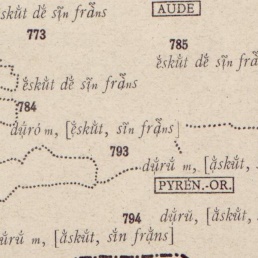 ẹskŭt dẹ sĩn frãns
AUDE
773
785
ẹskŭt dẹ sĩn frãns
ẹskŭt dẹ sĩn frãns
784
dụ̈ró m, [ẹskŭt, sin frãns]
793
dụ̈rŭ m, [ạskŭt,
PYRÉN.-OR.
794 dụ̈rŭ, [ạskŭt,
m, [ạskŭt, sin frãns]